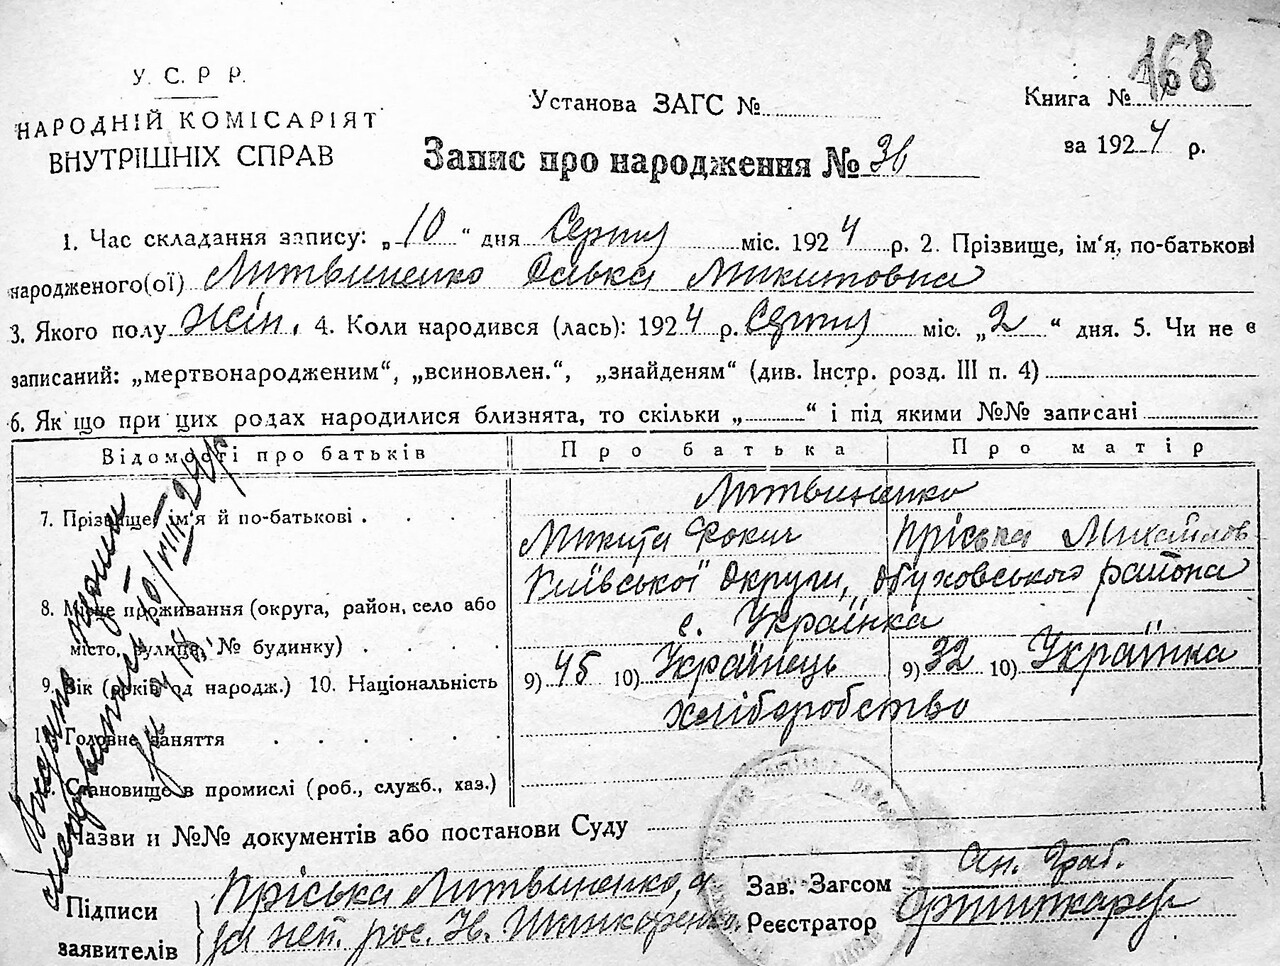 168
У. С. Р Р.
НАРОДНІЙ КОМІСАРІЯТ
ВНУТРІШНІХ СПРАВ
Установа ЗАГС №
Книга №
за 1924 р.
Запис про народження № 36
1. Час складання запису: „10“ дня Серпня міс. 1924 р. 2. Прізвище, ім'я, по-батькові
народженого(ої) Литвиненко Олька Микитовна
3. Якого полу жін. 4. Коли народився (лась): 1924 р. Серпня міс. „2“ дня. 5. Чи не є
записаний: „мертвонародженим“, „всиновлен.“, „знайденям“ (див. Інстр. розд. III п. 4)
6. Як що при цих родах народилися близнята, то скільки „ “ і під якими №№ записані
Відомості про батьків Про батька Про матір
Литвиненко
7. Прізвище, ім'я й по-батькові
Микита Фокич Пріська Михайлов
Київської округи, Обуховського района
8. Місце проживання (округа, район, село або
с. Українка
місто, вулиця, № будинку)
9. Вік (років од народж.) 10. Національність 9) 45 10) Українець 9) 32 10) Українка
хліборобство
Головне заняття
Становище в промислі (роб., служб., хаз.)
Назви и №№ документів або постанови Суду
Підписи
заявителів
Пріська Литвиненко, а
за неї рос. Ів. Шинкаренко
Зав. Загсом
Реєстратор